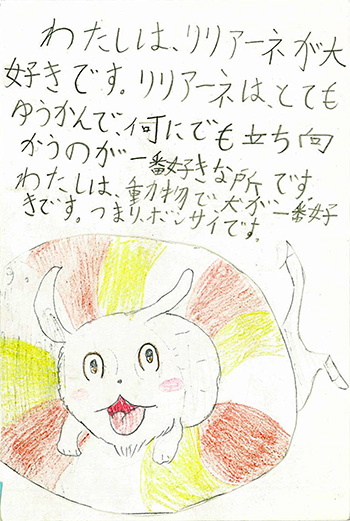 わたしは、リリアーネが大
好きです。リリアーネは、とても
ゆうかんで、何にでも立ち向
かうのが一番好きな所です。
わたしは、動物で犬が一番好
きです。つまり、ボンサイです。